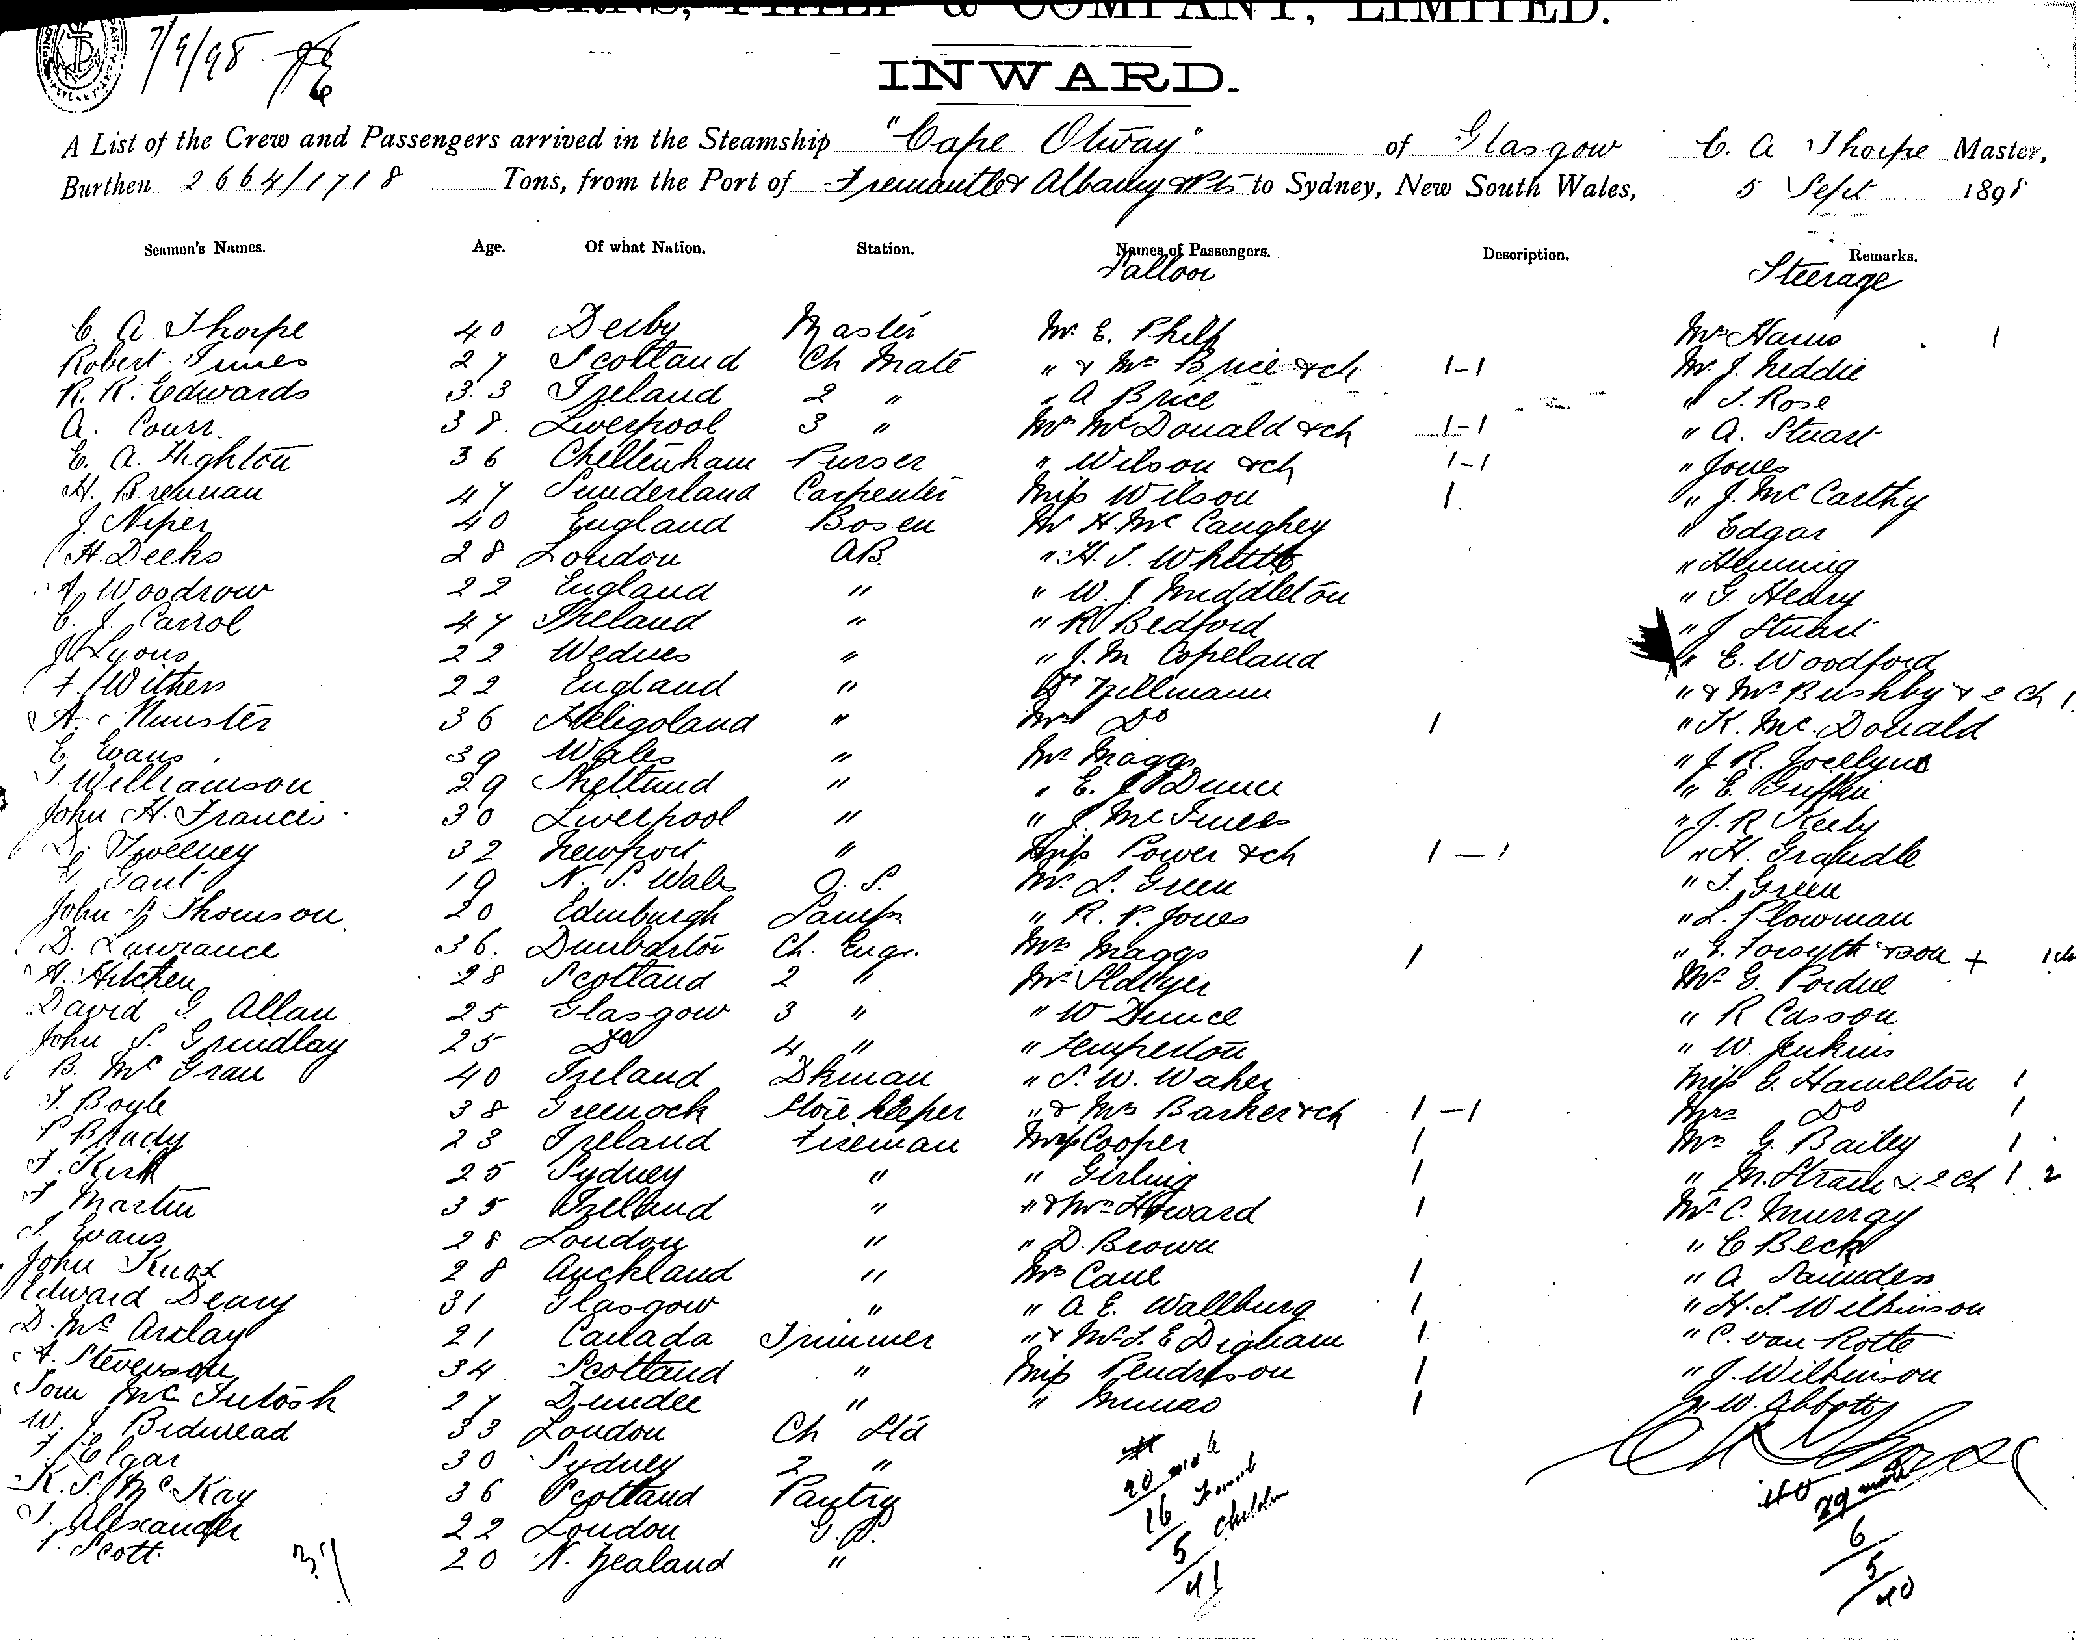 BURNS, PHILP & COMPANY, LIMITED.
7/9/98
INWARD.
A List of the Crew and Passengers arrived in the Steamship "Cape Otway" of Glasgow C. A Thorpe Master,
Burthen 2664/1718 Tons, from the Port of Fremantle & Albany & Pts to Sydney, New South Wales, 5 Sept 1898
Seamen's Names. Age. Of what Nation. Station. Names of Passengers. Description. Remarks.
Saloon Steerage
C. A Thorpe 40 Derby Master Mr. E. Philp Mrs Harris 1
Robert Innes 27 Scotland Ch Mate " & Mrs Brice & ch 1-1 Mr. J. Neddie
R. R. Edwards 33 Ireland 2 " " A Brice " T. Rose
A. Courr. 38. Liverpool 3 " Mrs McDonald & ch 1-1 " A. Stuart
E. A. Highton 36 Cheltenham Purser " Wilson & ch 1-1 " Jones
H. Brennan 47 Sunderland Carpenter Miss Wilson 1 " J. McCarthy
J. Niper 40 England Bosen Mr H. McCaughey " Edgar
H. Deeks 28 London AB. " H. S. Whittle " Henning
A. Woodrow 22 England " " W. J. Middleton " G Henry
C. J. Carrol 47 Ireland " " R Bedford " J Stuart
J. Lyons 22 Wednes " " J. M Copeland " E. Woodford
F. Withers 22 England " Dr Zillmann " & Mrs Bushby & 2 ch 1
A. Munster 36 Heligoland " Mrs Do 1 " K. McDonald
E Evans 39 Wales " Mr Maggs " J. R. Jocelyne
T. Williamson 29 Shetland " " E. J Dunn " E. Griffin
John H. Francis 30 Liverpool " " J. McInnes " J. R Keely
D. Tweeney 32 Newport " Miss Power & ch 1 - 1 " H. Grandle
G. Gant 19 N. S. Wales O. S. Mr. L. Green " T. Green
John B Thomson 20 Edinburgh Lamps " R. P. Jones " L. Plowman
D. Lawrance 36. Dunbarton Ch. Engr. Mrs Maggs 1 " G. Forsyth & son + 1 ch
A. Aitchen 28 Scotland 2 " Mr. Slatyer Mr. G. Pordue
David G Allan 25 Glasgow 3 " " W Dunce " R Casson
John S. Grindlay 25 Do 4 " " Temperton " W. Jenkins
B. McGran 40 Ireland Dkman " S. W. Waher Miss E. Hamelton 1
T. Boyle 38 Greenock Store keeper " & Mrs Barker & ch 1 - 1 Mrs Do 1
P Brady 23 Ireland Fireman Miss Cooper 1 Mrs G. Bailey 1
J. Kirk 25 Sydney " " Girling 1 " M. Strain & 2 ch 1 2
T Martin 35 Ireland " " & Mrs Howard 1 Mr. C. Murray
T. Evans 28 London " " D. Brown " C Beck
John Knox 28 Auckland " Mrs Cane 1 " A Saunders
Edward Deary 31 Glasgow " " A E. Wallburg 1 " H. S. Wilkinson
D. McArlay 21 Canada Trimmer " & Mrs S. E Digham 1 " C. van Rotte
A. Stevenson 34 Scotland " Miss Pendrson 1 " J. Wilkinson
Tom McIntosh 27 Dundee " " Munro 1 " W. Abbott
W. J. Birdwead 33 London Ch Std
F. Elgar 30 Sydney 2 "
K. S. McKay 36 Scotland Pantry
T. Alexander 22 London G. S.
T. Scott. 20 N. Zealand "
C A Thorpe
20 male
16 Female
5 Children
41
40
29 male
6
5
40